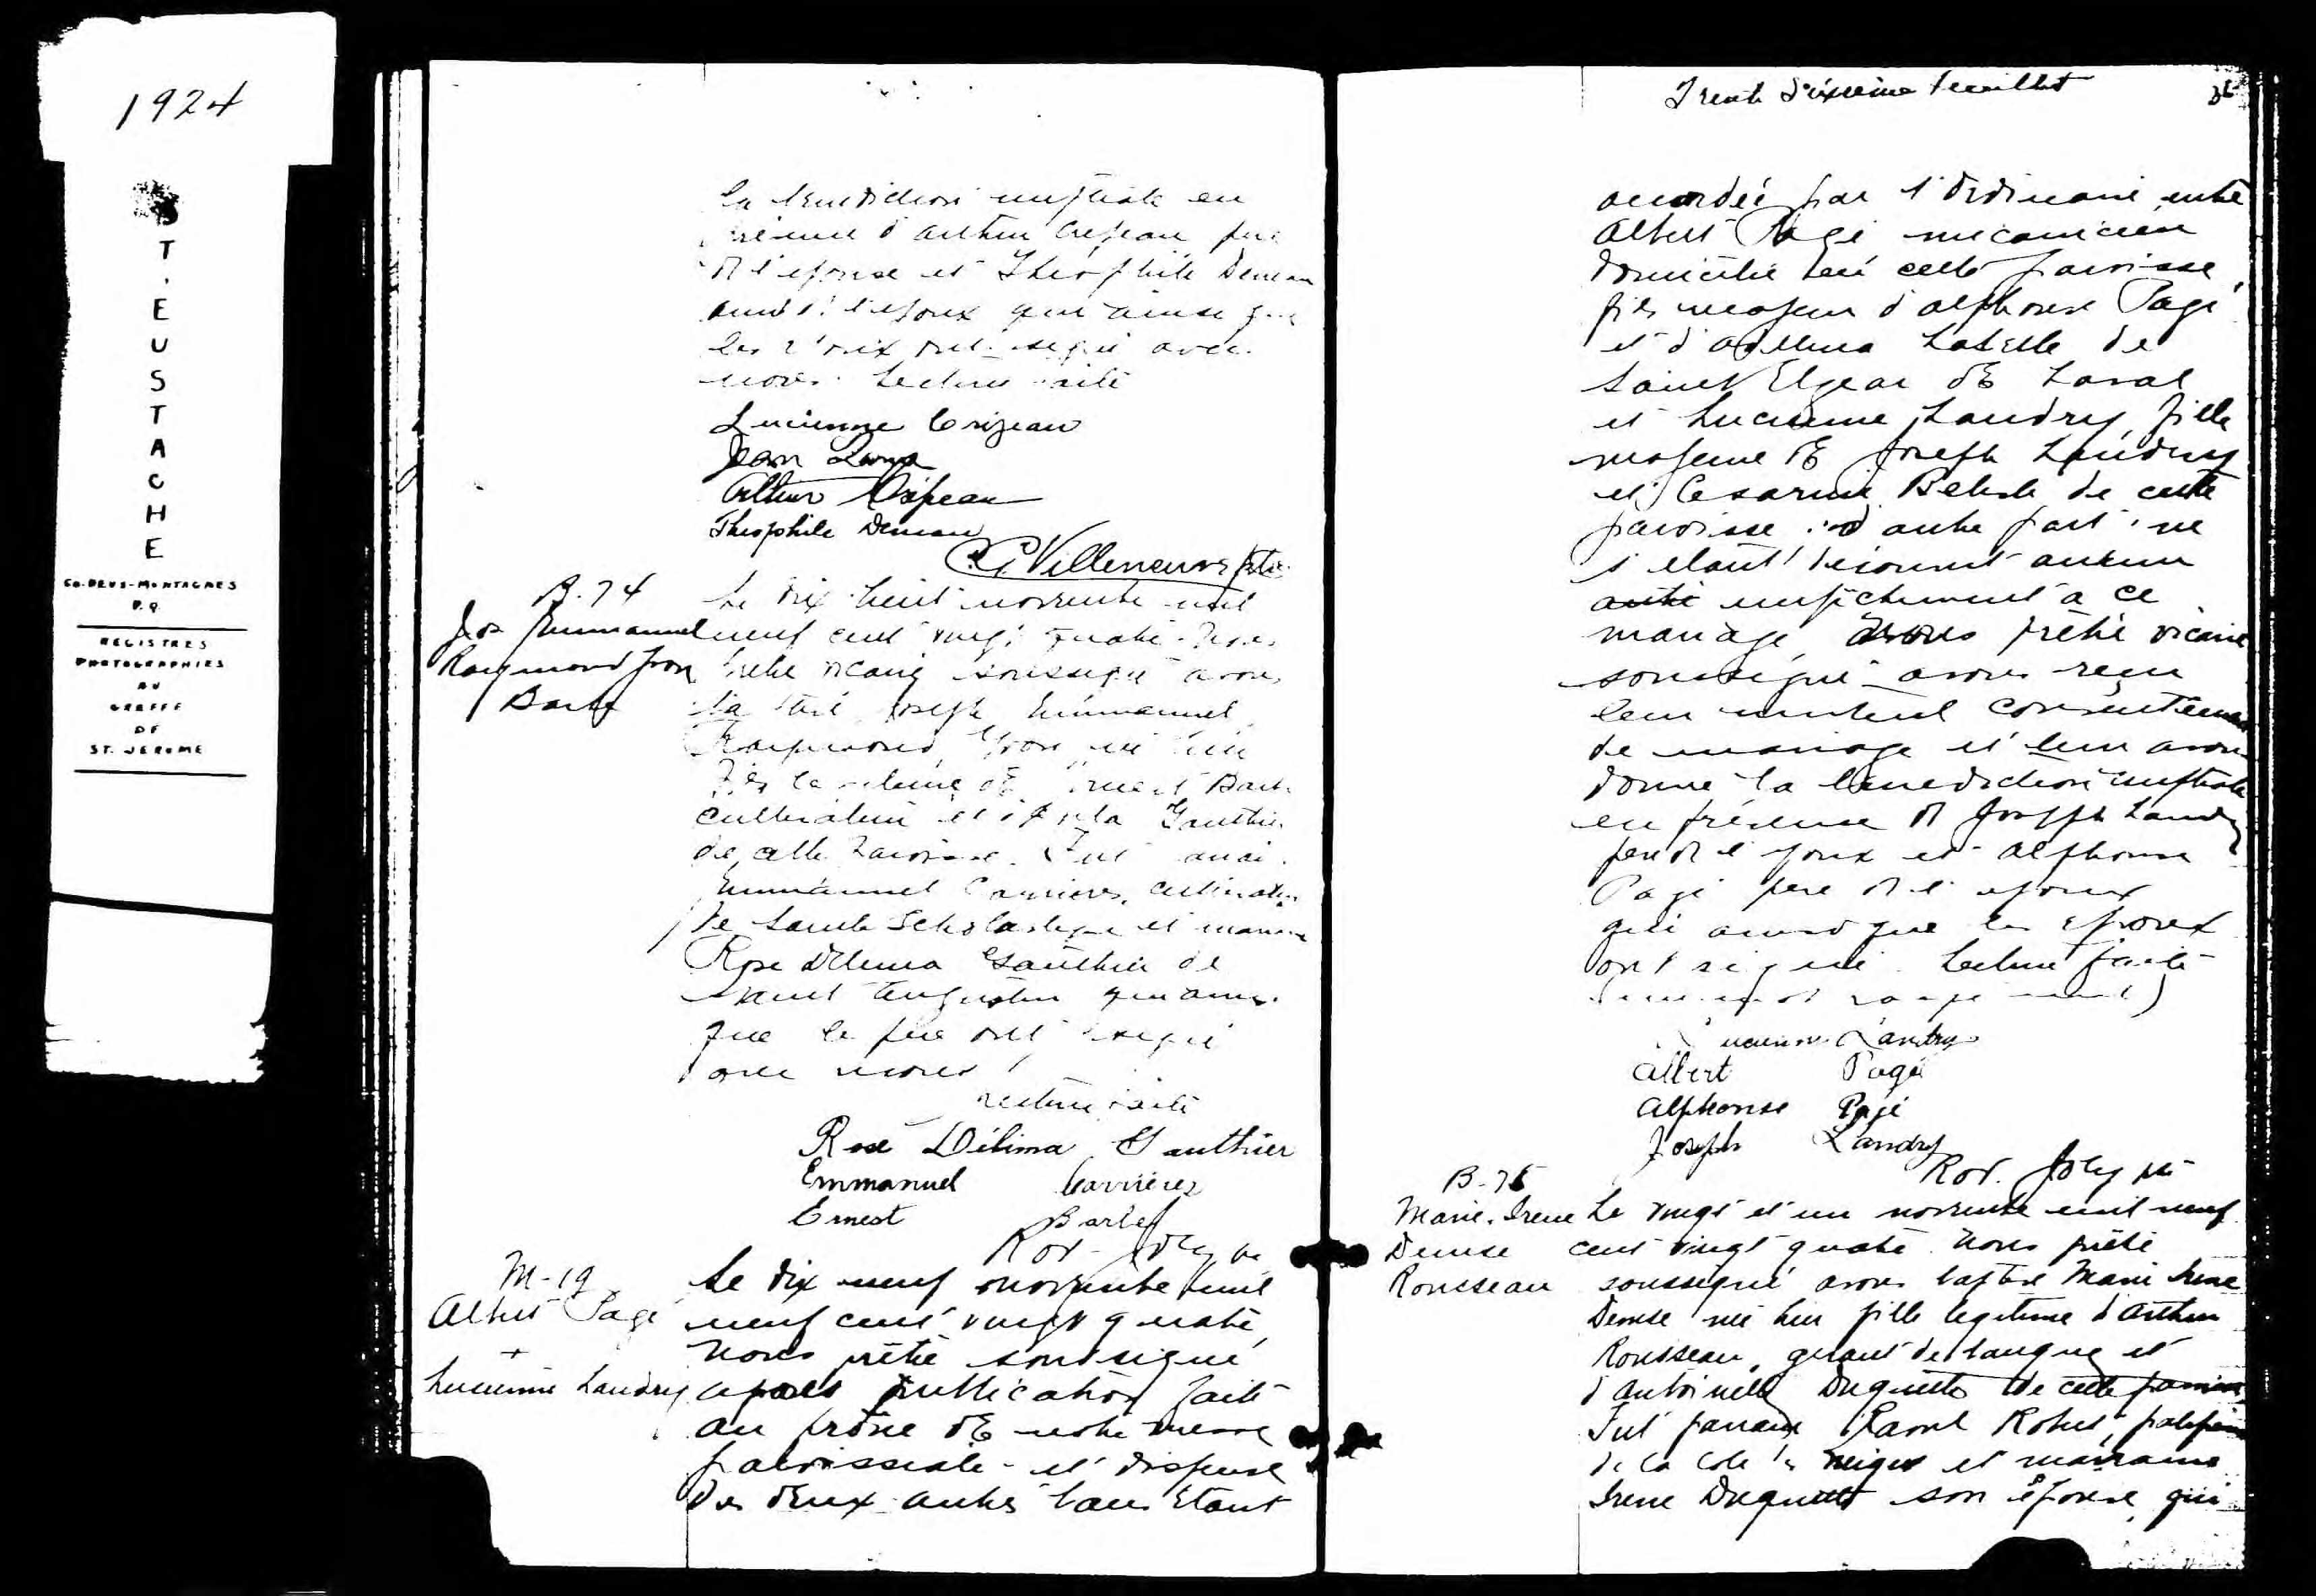 1924
ST. EUSTACHE
CO. DEUX-MONTAGNES
P.Q.
REGISTRES
PHOTOGRAPHIES
AU
GREFFE
DE
ST. JEROME
la benediction nuptiale en
présence d'Arthur Crépeau père
de l'épouse et Théophile Demeau
ami de l'époux qui ainsi que
les époux ont signé avec
nous. Lecture faite
Lucienne Crépeau
Jean
Arthur Crépeau
Théophile Demeau
Villeneuve ptre
B-74
Jos Emmanuel
Raymond Yvon
Barbe
Le dix huit novembre mil
neuf cent vingt quatre Nous
prêtre vicaire soussigné avons
baptisé Joseph Emmanuel
Raymond Yvon né hier
fils légitime de Ernest Barbe
cultivateur et de Gauthier
de cette paroisse. Fut parrain
Emmanuel Carrières, cultivateur
de Sainte Scholastique et marraine
Rose Délima Gauthier de
Saint Augustin qui ainsi
que le père ont signé
avec nous
Lecture faite
Rose Délima Gauthier
Emmanuel Carrières
Ernest Barbe
Rod. Joly ptre
M-19
Albert Pagé
+
Lucienne Landry
Le dix neuf novembre mil
neuf cent vingt quatre
Nous prêtre soussigné
après publication faite
au prône de notre messe
paroissiale et dispense
des deux autres bans étant
Trente sixième feuillet
36
accordée par l'Ordinaire entre
Albert Pagé mécanicien
domicilié en cette paroisse,
fils majeur d'Alphonse Pagé
et d'Adelina Labelle de
Saint Elzear de Laval
et Lucienne Landry, fille
majeure de Joseph Landry
et Césarine Belisle de cette
paroisse d'autre part; ne
s'étant découvert aucun
autre empêchement à ce
mariage, Nous prêtre vicaire
soussigné avons reçu
leur mutuel consentement
de mariage et leur avons
donné la bénédiction nuptiale
en présence de Joseph Landry
père de l'époux et Alphonse
Pagé père de l'époux
qui ainsi que les époux
ont signé. Lecture faite
Lucienne Landry
Albert Pagé
Alphonse Pagé
Joseph Landry
Rod. Joly ptre
B-75
Marie Irene
Denise
Rousseau
Le vingt et un novembre mil neuf
cent vingt quatre Nous prêtre
soussigné avons baptisé Marie Irene
Denise née hier fille légitime d'Arthur
Rousseau, gérant de banque et
d'Antoinette Duquette de cette paroisse
Fut parrain Raoul
de la Cote des Neiges et marraine
Irene Duquette son épouse, qui